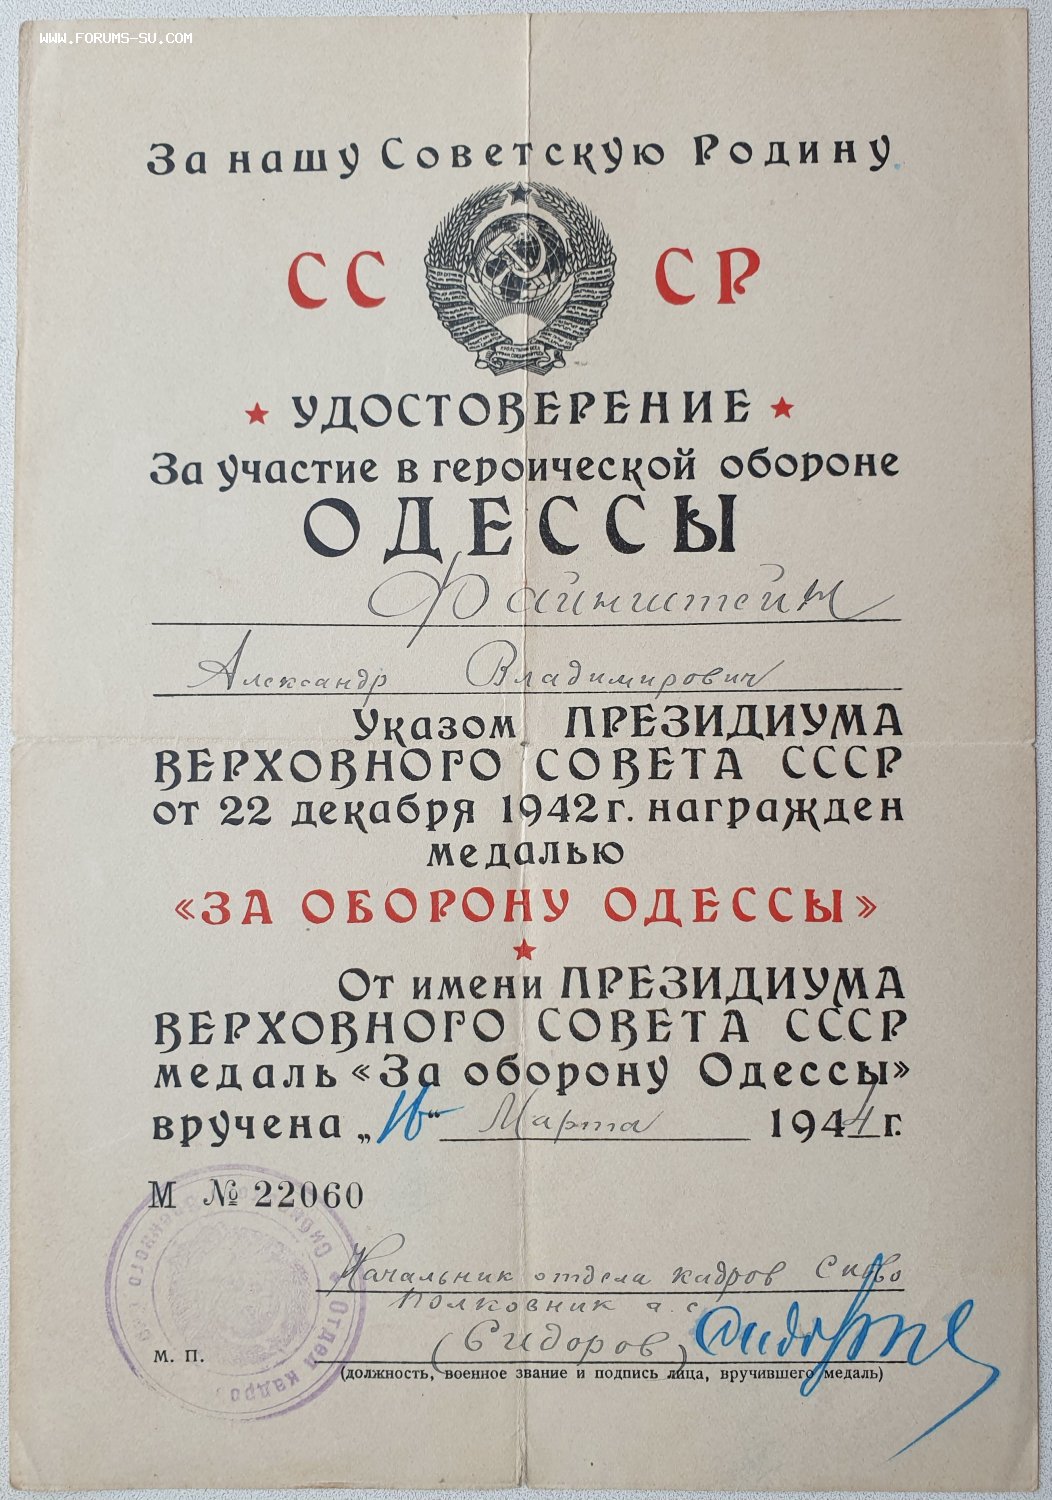 WWW.FORUMS-SU.COM
За нашу Советскую Родину
СССР
УДОСТОВЕРЕНИЕ
За участие в героической обороне
ОДЕССЫ
Файнштейн
Александр Владимирович
Указом ПРЕЗИДИУМА
ВЕРХОВНОГО СОВЕТА СССР
от 22 декабря 1942 г. награжден
медалью
«ЗА ОБОРОНУ ОДЕССЫ»
От имени ПРЕЗИДИУМА
ВЕРХОВНОГО СОВЕТА СССР
медаль «За оборону Одессы»
вручена „16“ Марта 1944 г.
М № 22060
Начальник отдела кадров СибВО
Полковник а. с.
(Сидоров)
М. П.
(должность, военное звание и подпись лица, вручившего медаль)
Отдел кадро